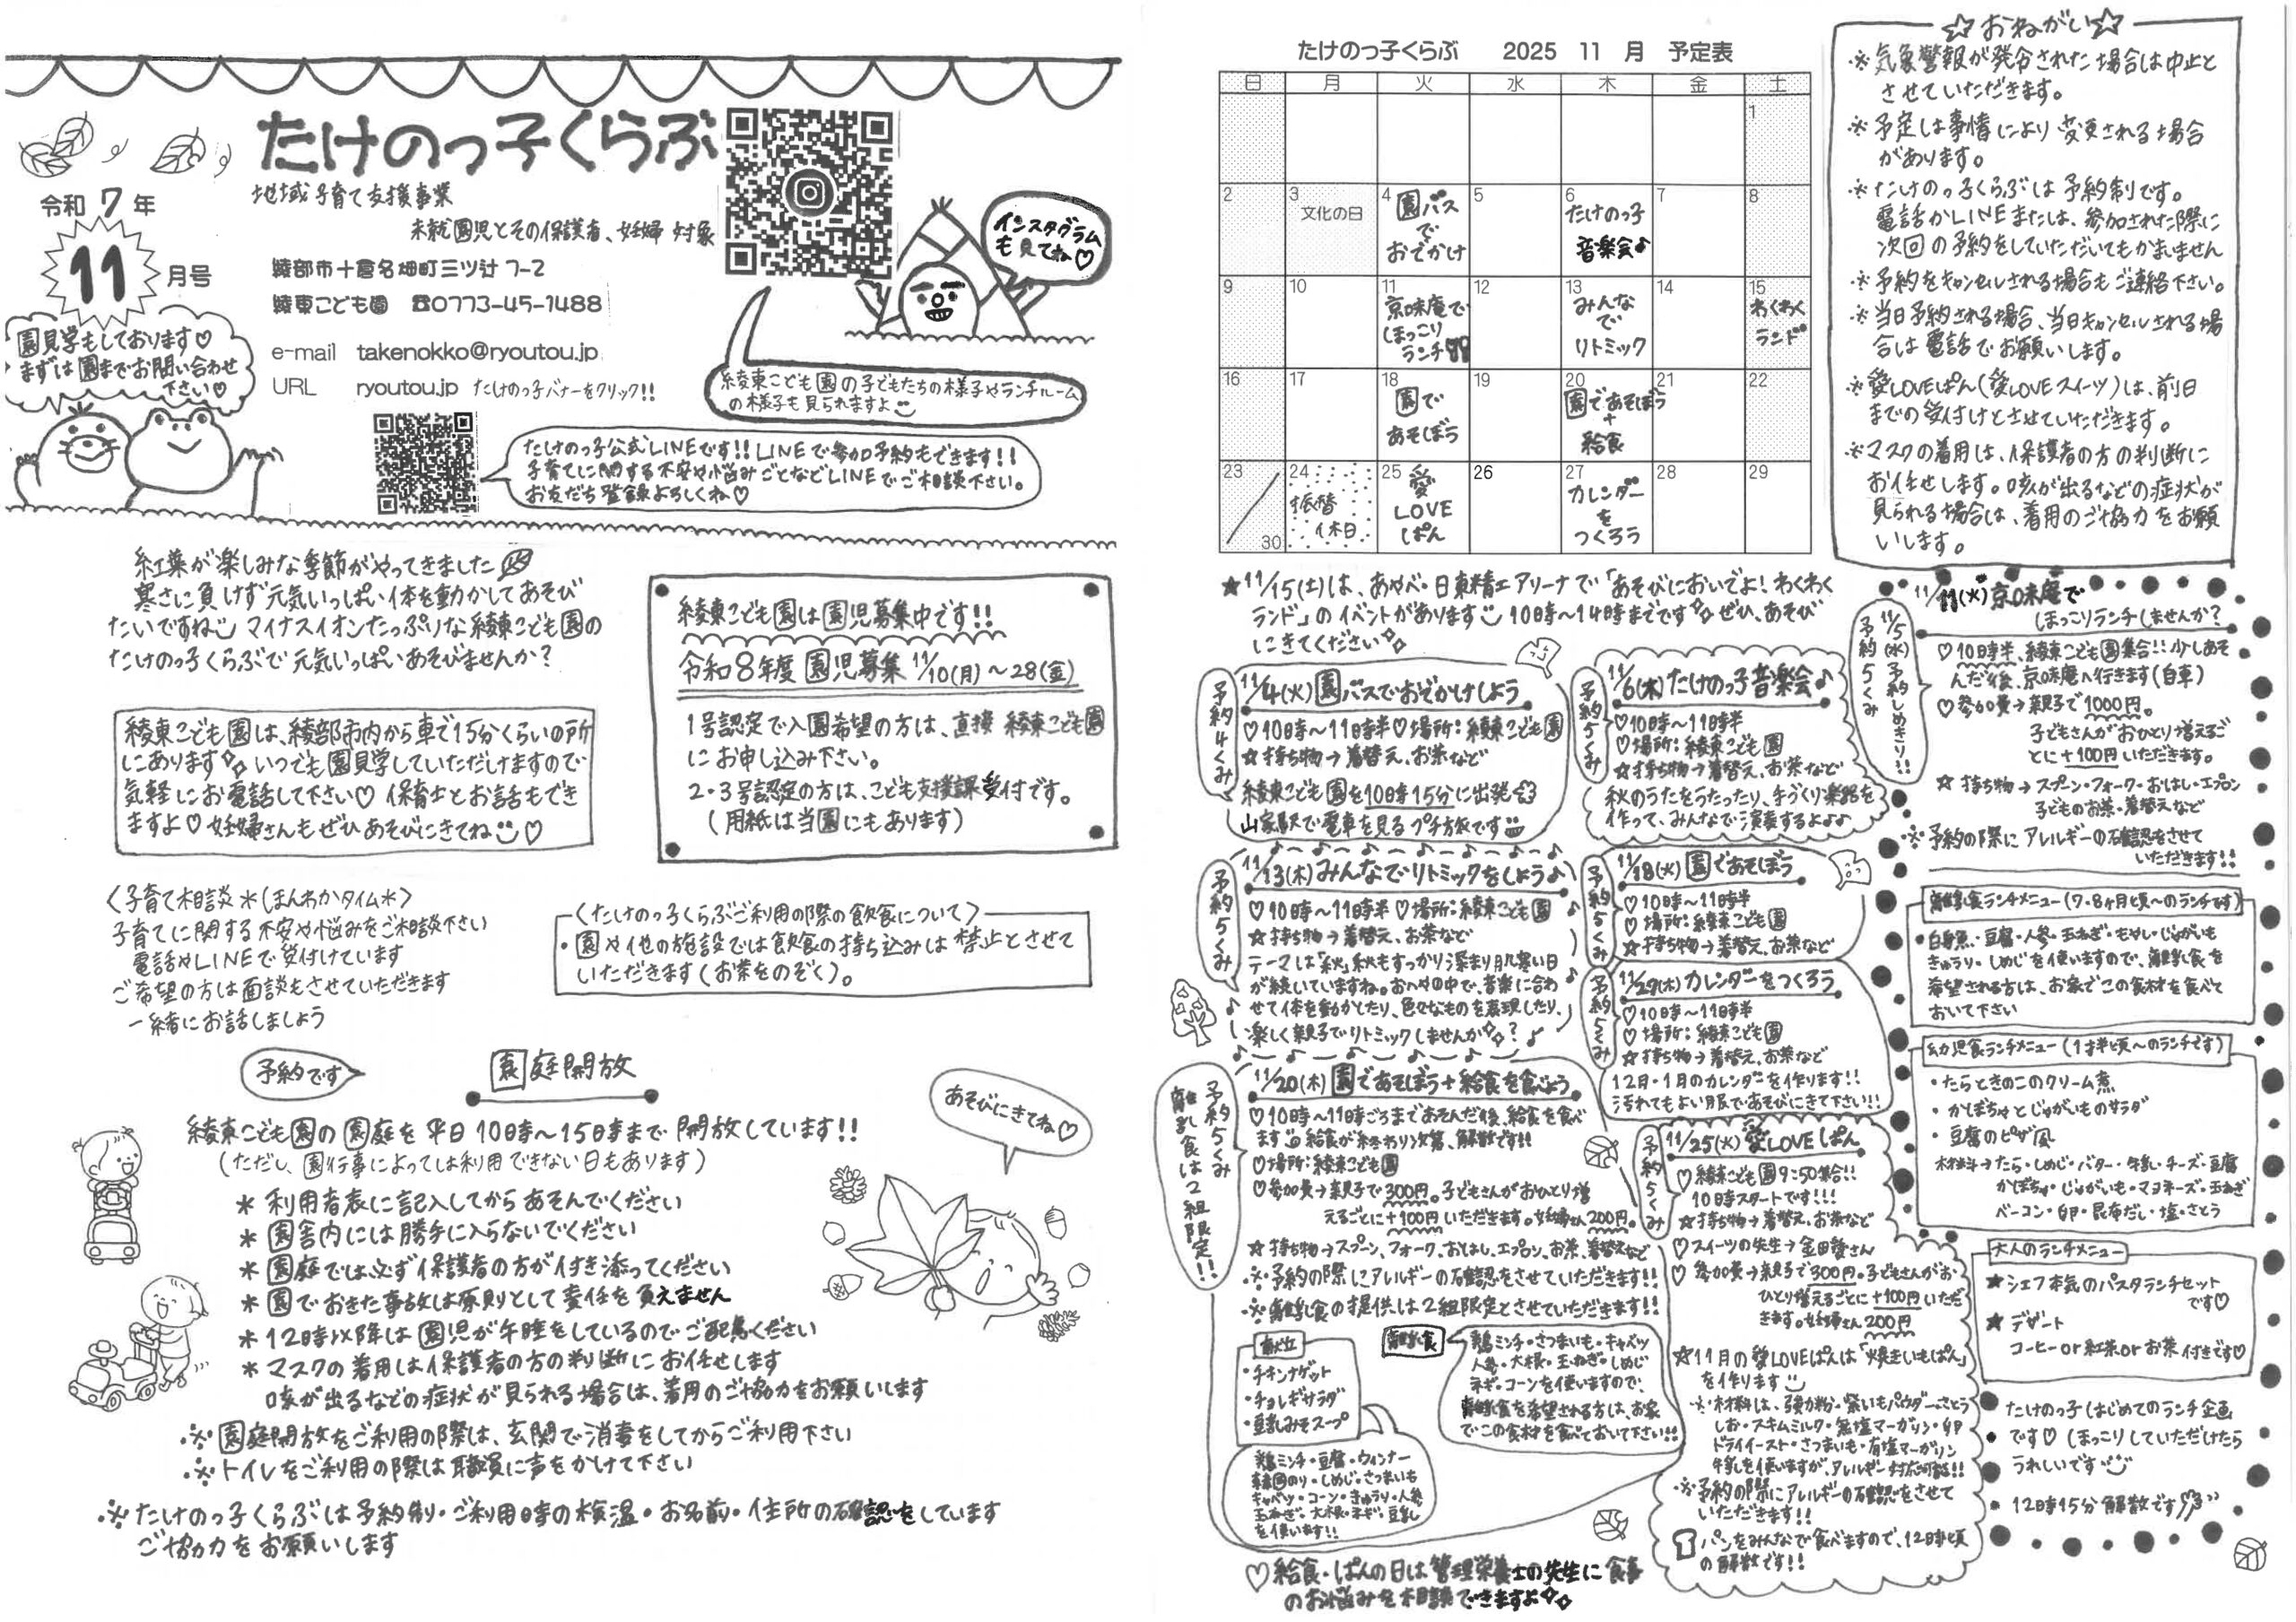 たけのっ子くらぶ
令和7年
11月号
地域子育て支援事業
未就園児とその保護者、妊婦 対象
綾部市十倉名畑町三ツ辻 7-2
綾東こども園 ☎0773-45-1488
e-mail takenokko@ryoutou.jp
URL ryoutou.jp たけのっ子バナーをクリック!!
インスタグラム
も見てね♡
綾東こども園の子どもたちの様子やランチルーム
の様子も見られますよ
園見学もしております♡
まずは園までお問い合わせ
下さい♡
たけのっ子公式LINEです!! LINEで参加予約もできます!!
子育てに関する不安や悩みごとなどLINEでご相談下さい。
お友だち登録よろしくね♡
紅葉が楽しみな季節がやってきました
寒さに負けず元気いっぱい体を動かしてあそび
たいですね マイナスイオンたっぷりな綾東こども園の
たけのっ子くらぶで元気いっぱいあそびませんか?
綾東こども園は園児募集中です!!
令和8年度 園児募集 11/10(月)〜28(金)
1号認定で入園希望の方は、直接 綾東こども園
にお申し込み下さい。
2・3号認定の方は、こども支援課受付です。
(用紙は当園にもあります)
綾東こども園は、綾部市内から車で15分くらいの所
にあります いつでも園見学していただけますので
気軽にお電話して下さい♡ 保育士とお話もでき
ますよ♡ 妊婦さんもぜひあそびにきてね♡
〈子育て相談*(ほんわかタイム*)〉
子育てに関する不安や悩みをご相談下さい
電話やLINEで受付けています
ご希望の方は面談もさせていただきます
一緒にお話しましょう
〈たけのっ子くらぶご利用の際の飲食について〉
・園や他の施設では飲食の持ち込みは禁止とさせて
いただきます(お茶をのぞく)。
予約です
園庭開放
あそびにきてね♡
綾東こども園の園庭を平日10時〜15時まで開放しています!!
(ただし、園行事によっては利用できない日もあります)
* 利用者表に記入してからあそんでください
* 園舎内には勝手に入らないでください
* 園庭では必ず保護者の方が付き添ってください
* 園でおきた事故は原則として責任を負えません
* 12時以降は園児が午睡をしているのでご配慮ください
* マスクの着用は保護者の方の判断にお任せします
咳が出るなどの症状が見られる場合は、着用のご協力をお願いします
※園庭開放をご利用の際は、玄関で消毒をしてからご利用下さい
※トイレをご利用の際は職員に声をかけて下さい
※たけのっ子くらぶは予約制・ご利用時の検温・お名前・住所の確認をしています
ご協力をお願いします
たけのっ子くらぶ 2025 11 月 予定表
日 月 火 水 木 金 土
1
2 3 4 5 6 7 8
文化の日
園バス
で
おでかけ
たけのっ子
音楽会♪
9 10 11 12 13 14 15
京味庵で
ほっこり
ランチ
みんな
で
リトミック
わくわく
ランド
16 17 18 19 20 21 22
園で
あそぼう
園であそぼう
+
給食
23 24 25 26 27 28 29
30
振替
休日
愛
LOVE
ぱん
カレンダー
を
つくろう
☆おねがい☆
※気象警報が発令された場合は中止と
させていただきます。
※予定は事情により変更される場合
があります。
※たけのっ子くらぶは予約制です。
電話かLINEまたは、参加された際に
次回の予約をしていただいてもかまいません
※予約をキャンセルされる場合もご連絡下さい。
※当日予約される場合、当日キャンセルされる場
合は電話でお願いします。
※愛LOVEぱん(愛LOVEスイーツ)は、前日
までの受付けとさせていただきます。
※マスクの着用は、保護者の方の判断に
お任せします。咳が出るなどの症状が
見られる場合は、着用のご協力をお願
いします。
★11/15(土)は、あやべ・日東精工アリーナで「あそびにおいでよ!わくわく
ランド」のイベントがあります 10時〜14時までです ぜひ、あそび
にきてください
予約4くみ
11/4(火) 園バスでおでかけしよう
♡10時〜11時半 ♡場所:綾東こども園
☆持ち物→着替え、お茶など
綾東こども園を10時15分に出発
山家駅で電車を見るプチ旅です
予約5くみ
11/6(木) たけのっ子音楽会♪
♡10時〜11時半
♡場所:綾東こども園
☆持ち物→着替え、お茶など
秋のうたをうたったり、手づくり楽器を
作って、みんなで演奏するよ♪♪
予約5くみ
11/13(木) みんなでリトミックをしよう♪
♡10時〜11時半 ♡場所:綾東こども園
☆持ち物→着替え、お茶など
テーマは「秋」秋もすっかり深まり肌寒い日
が続いていますね。おへやの中で、音楽に合わ
せて体を動かしたり、色々なものを表現したり、
楽しく親子でリトミックしませんか?
予約5くみ
11/18(火) 園であそぼう
♡10時〜11時半
♡場所:綾東こども園
☆持ち物→着替え、お茶など
予約5くみ
11/27(木) カレンダーをつくろう
♡10時〜11時半
♡場所:綾東こども園
☆持ち物→着替え、お茶など
12月・1月のカレンダーを作ります!!
汚れてもよい服であそびにきて下さい!!
予約5くみ
離乳食は2組限定!!
11/20(木) 園であそぼう+給食を食べよう
♡10時〜11時ごろまであそんだ後、給食を食べ
ます 給食が終わり次第、解散です!!
♡場所:綾東こども園
♡参加費→親子で300円。子どもさんがおひとり増
えるごとに+100円いただきます。妊婦さん200円。
☆持ち物→スプーン、フォーク、おはし、エプロン、お茶、着替えなど
※予約の際にアレルギーの確認をさせていただきます!!
※離乳食の提供は2組限定とさせていただきます!!
献立
・チキンナゲット
・チョレギサラダ
・豆乳みそスープ
鶏ミンチ・豆腐・ウィンナー
韓国のり・しめじ・さつまいも
キャベツ・コーン・きゅうり・人参
玉ねぎ・大根・ネギ・豆乳
を使います!!
離乳食
鶏ミンチ・さつまいも・キャベツ
人参・大根・玉ねぎ・しめじ
ネギ・コーンを使いますので、
離乳食を希望される方は、お家
でこの食材を食べておいて下さい!!
♡給食・ぱんの日は管理栄養士の先生に食事
のお悩みを相談できますよ
予約5くみ
11/25(火) 愛LOVEぱん
♡綾東こども園9:50集合!!
10時スタートです!!!
☆持ち物→着替え、お茶など
♡スイーツの先生→金田愛さん
♡参加費→親子で300円。子どもさんがお
ひとり増えるごとに+100円いただ
きます。妊婦さん200円
☆11月の愛LOVEぱんは「焼きいもぱん」
を作ります
※材料は、強力粉・紫いもパウダー・さとう
しお・スキムミルク・無塩マーガリン・卵
ドライイースト・さつまいも・有塩マーガリン
牛乳を使いますが、アレルギー対応可能!!
※予約の際にアレルギーの確認をさせて
いただきます!!
パンをみんなで食べますので、12時頃
の解散です!!
11/5(水)予約しめきり!!
予約5くみ
11/11(火) 京味庵で
ほっこりランチしませんか?
♡10時半、綾東こども園集合!!少しあそ
んだ後、京味庵へ行きます(自車)
♡参加費→親子で1000円。
子どもさんがおひとり増えるご
とに+100円いただきます。
☆持ち物→スプーン・フォーク・おはし・エプロン
子どものお茶・着替えなど
※予約の際にアレルギーの確認をさせて
いただきます!!
離乳食ランチメニュー(7・8ヶ月頃〜のランチです)
・白身魚・豆腐・人参・玉ねぎ・もやし・じゃがいも
きゅうり・しめじを使いますので、離乳食を
希望される方は、お家でこの食材を食べて
おいて下さい
幼児食ランチメニュー(1才半頃〜のランチです)
・たらときのこのクリーム煮
・かぼちゃとじゃがいものサラダ
・豆腐のピザ風
材料→たら・しめじ・バター・牛乳・チーズ・豆腐
かぼちゃ・じゃがいも・マヨネーズ・玉ねぎ
ベーコン・卵・昆布だし・塩・さとう
大人のランチメニュー
★シェフ本気のパスタランチセット
です♡
★デザート
コーヒーor紅茶orお茶付きです♡
たけのっ子はじめてのランチ企画
です♡ ほっこりしていただけたら
うれしいです
12時15分解散です